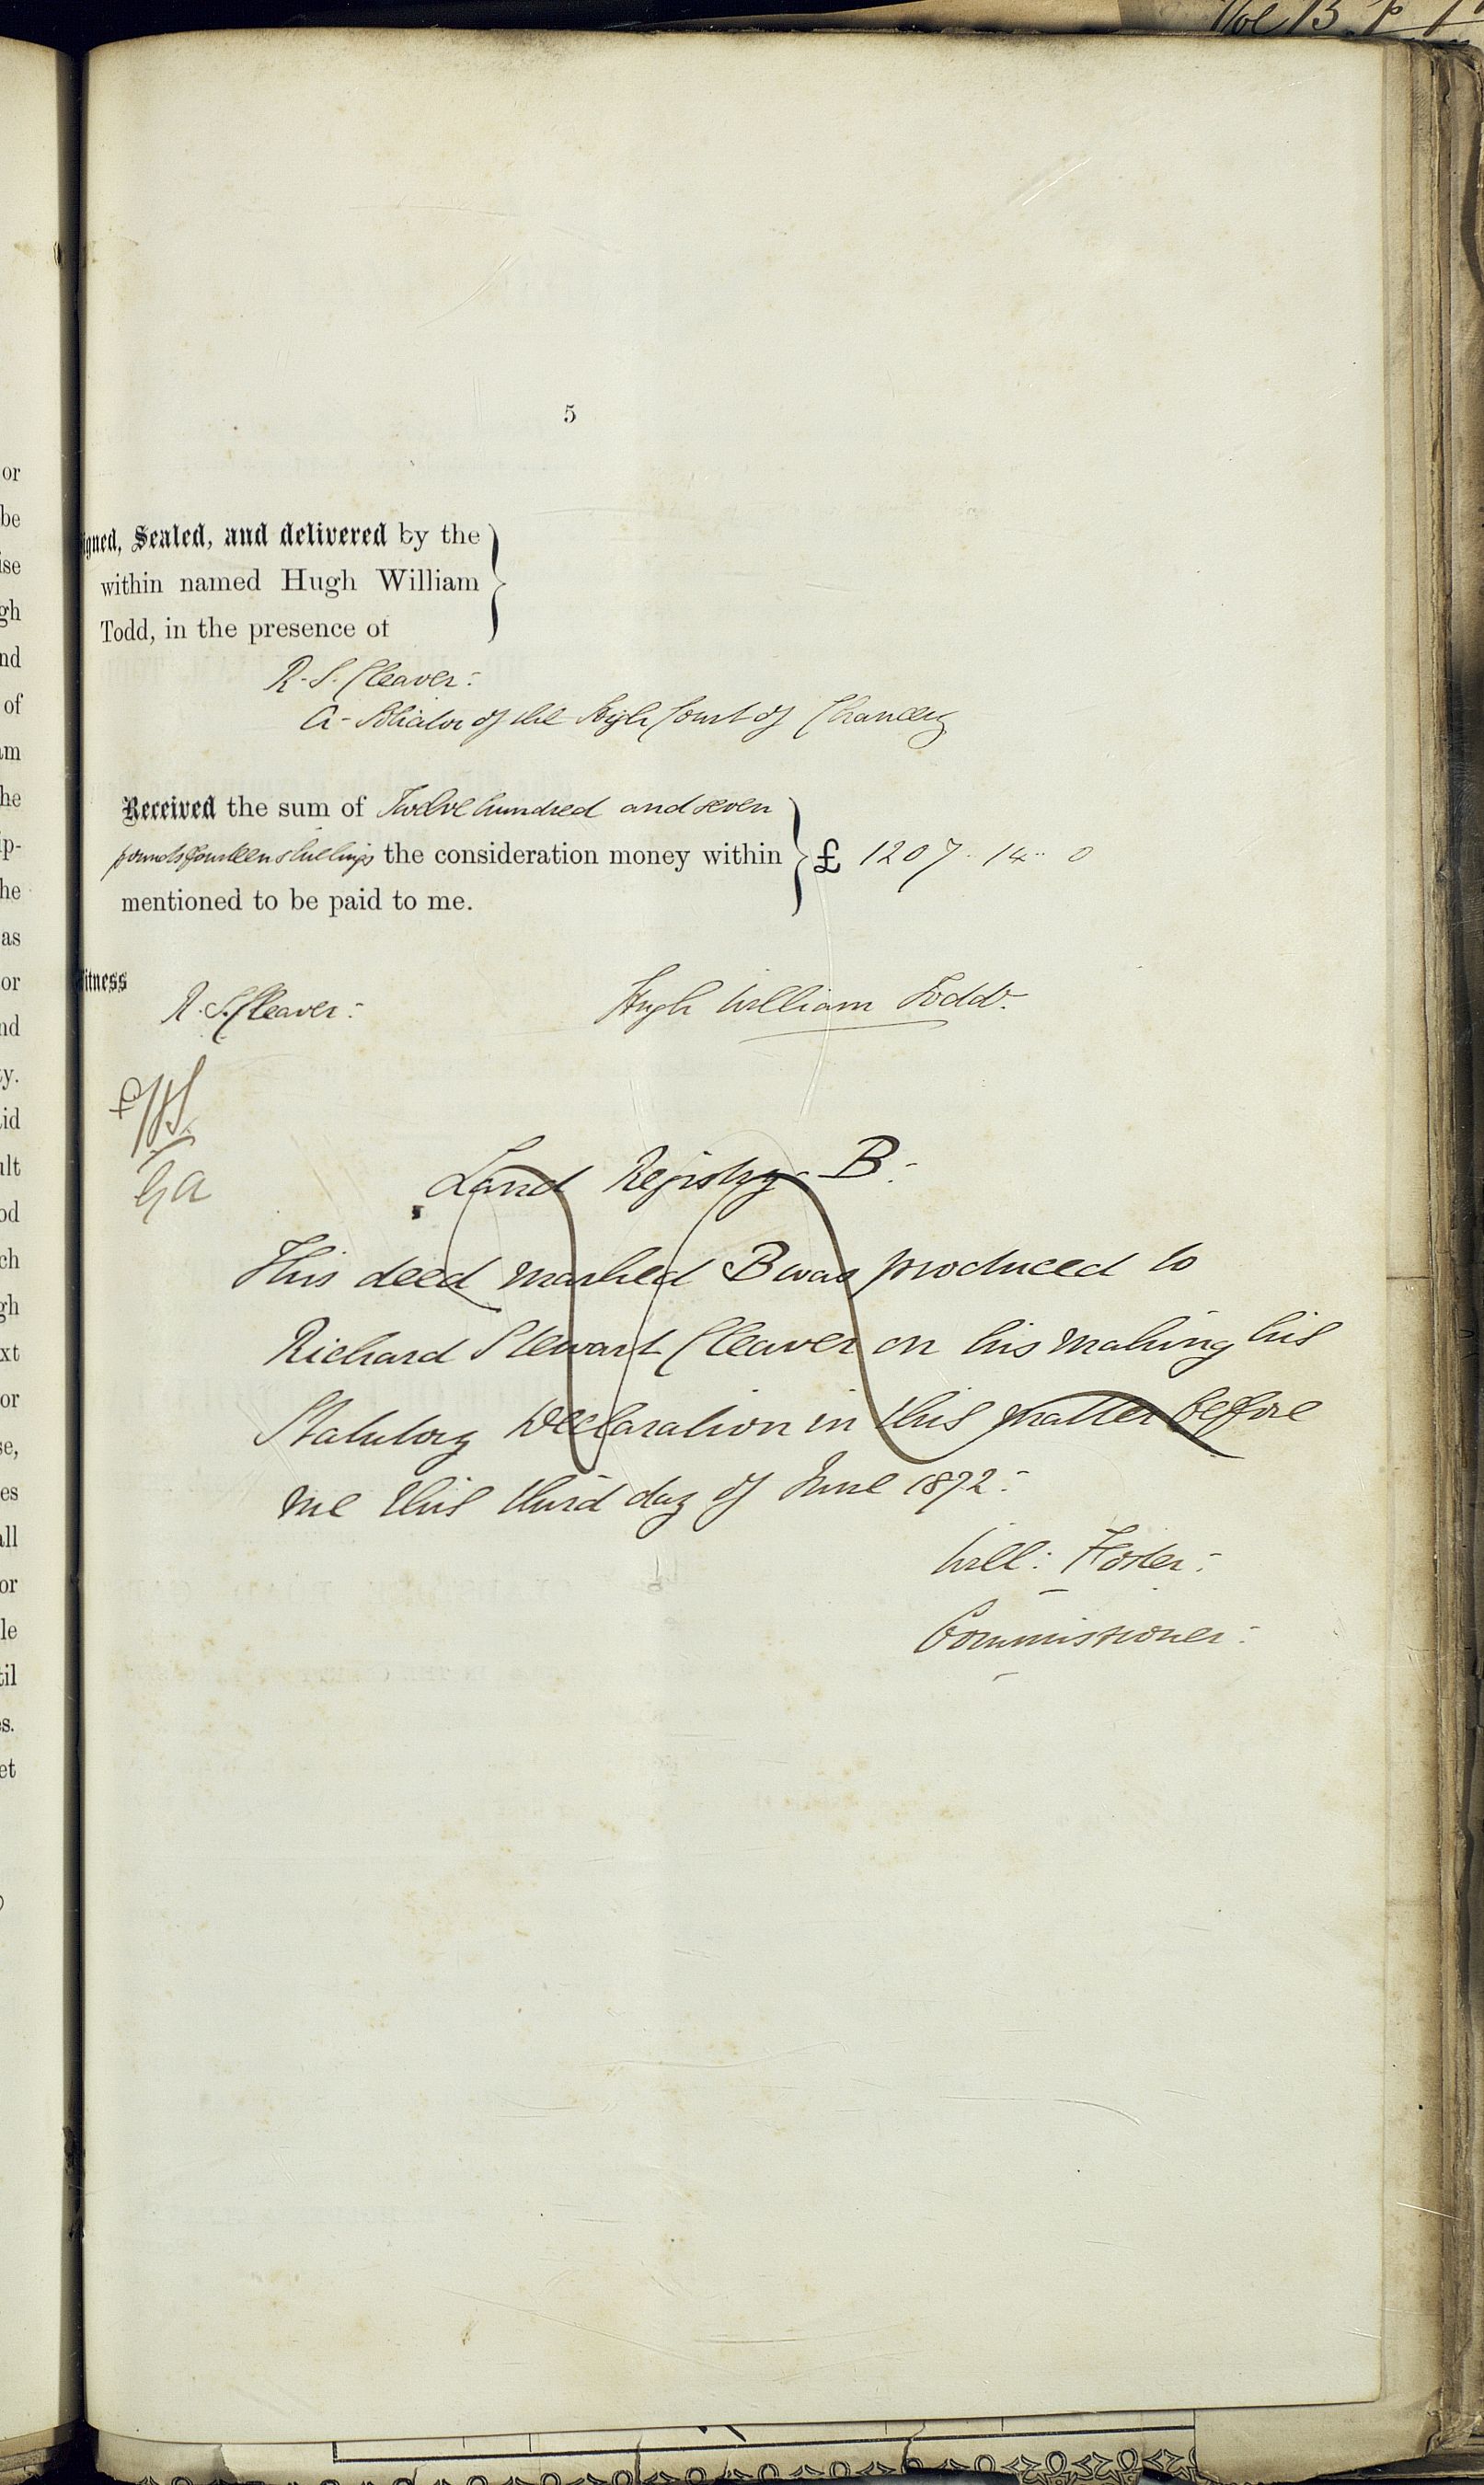 5
igned, Sealed, and delivered by the
within named Hugh William
Todd, in the presence of
R. S. Cleaver
A Solicitor of the High Court of Chancery
Received the sum of Twelve hundred and seven
pounds fourteen shillings the consideration money within
mentioned to be paid to me.
£ 1207.. 14.. 0
itness
R. S. Cleaver
Hugh William Todd
Land Registry B
This deed marked B was produced to
Richard Stewart Cleaver on his making his
Statutory Declaration in this matter before
me this third day of June 1872
Will: Foster
Commissioner